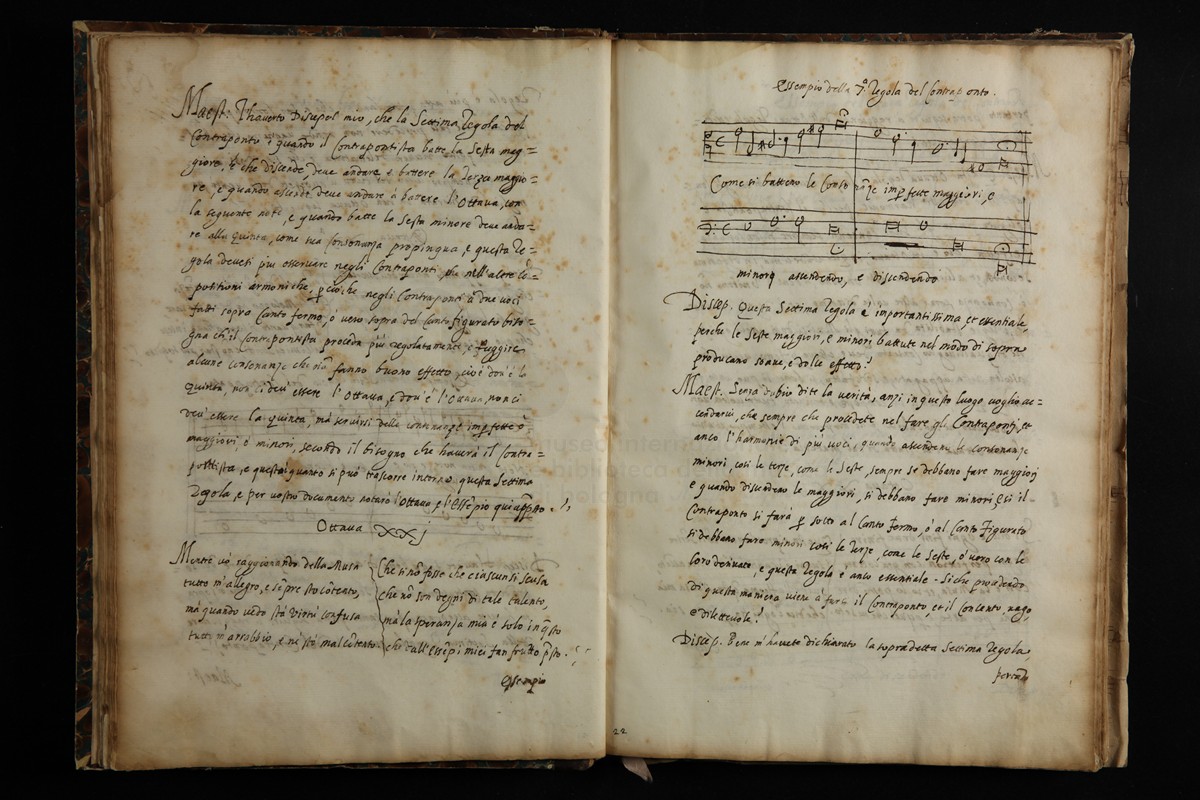 Maest. Ihaverto Discepol mio, che la Settima Regola del
Contraponto è quando il Contrapontista batte la Sesta mag=
giore, è che discende, deve andare, à battere la Terza maggio=
re, e quando ascende deve andare à battere l'Ottava, con
la seguente nota, e quando batte la Sesta minore deve anda=
re alla Quinta, come sua Consonanza propinqua, e questa Re=
gola devesi più osservare negli Contraponti, che nell'altre Co=
positioni armoniche, perciòche negli Contraponti à due voci
fatti sopra Canto fermo, ò vero sopra del Canto figurato biso=
gna ch'il Contrapontista proceda più regolatamente, e fuggire
alcune consonanze che nõ fanno buono effetto, cioè dov'è la
Quinta, non ci deu' essere l'Ottava, e dov'è l'Ottava, non ci
deu' essere la quinta, mà servirsi delle consonanze imperfette ò
maggiori, è minori, secondo il bisogno che haverà il Contra=
puntista, e questo quanto si può trascorre intorno questa Settima
Regola, e per vostro documento notarò l'Ottava, e l'Essẽpio qui appsto.
Ottava XXj
Mentre vò raggionando della Musa
tutto m'allegro, e sẽpre sto cõtento,
mà quando vedo sta virtù confusa
tutto m'arrabbio, e ne stò malcõtento.
Che si nõ fosse che ciascun si scusa
che nõ son degni di tale talento,
mà la speranza mia è solo in qsto
che dall'Essẽpi miei fan frutto psto.
Essempio
Essempio della 7.ª Regola del Contraponto.
Come si batteno le Consonãze imperfette maggiori, e
minori ascendendo, e discendendo
Discep. Questa Settima Regola è importantissima, et essentiale,
perche le Seste maggiori, e minori battute nel modo di sopra
producano soave, e dolce effetto!
Maest. Senza dubio dite la verità, anzi in questo luogo voglio ac=
cendarvi, che sempre che procedete nel fare gli Contraponti, et
anco l'harmonie di più voci, quando ascendeno le consonanze
minori, così le terze, come le Seste, sempre se debbano fare maggiori
e quando discendeno le maggiori, si debbano fare minori, e si il
Contraponto si farà per sotto al Canto fermo, ò al Canto figurato
si debbano fare minori così le Terze, come le Seste, ò vero con le
loro derivate, e questa Regola è anco essentiale. Si che procedendo
di questa maniera viene à farsi il Contraponto, et il Concento, vago,
e dilettevole!
Discep. Bene m'havete dichiarato la sopradetta Settima Regola,
22